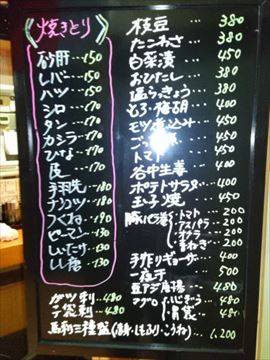 焼きとり
砂肝 150
レバー 150
ハツ 150
シロ 170
タン 170
カシラ 170
ひな 170
皮 170
手羽先 180
ナンコツ 180
つくね 190
ピーマン 130
しいたけ 130
しし唐 130
ガツ刺 480
子袋刺 480
馬刺三種盛
枝豆 380
たこわさ 380
白菜漬 450
おひたし 380
島らっきょう 380
もろ・梅胡 400
モツ煮込み 450
トマト 450
谷中生姜 400
ポテトサラダ 400
玉子焼 450
豚バラ巻 トマト 200
アスパラ 200
オクラ 200
青ねぎ 200
手作りギョーザ
一夜干
豆アジ唐揚 450
マグロ 480
1,200